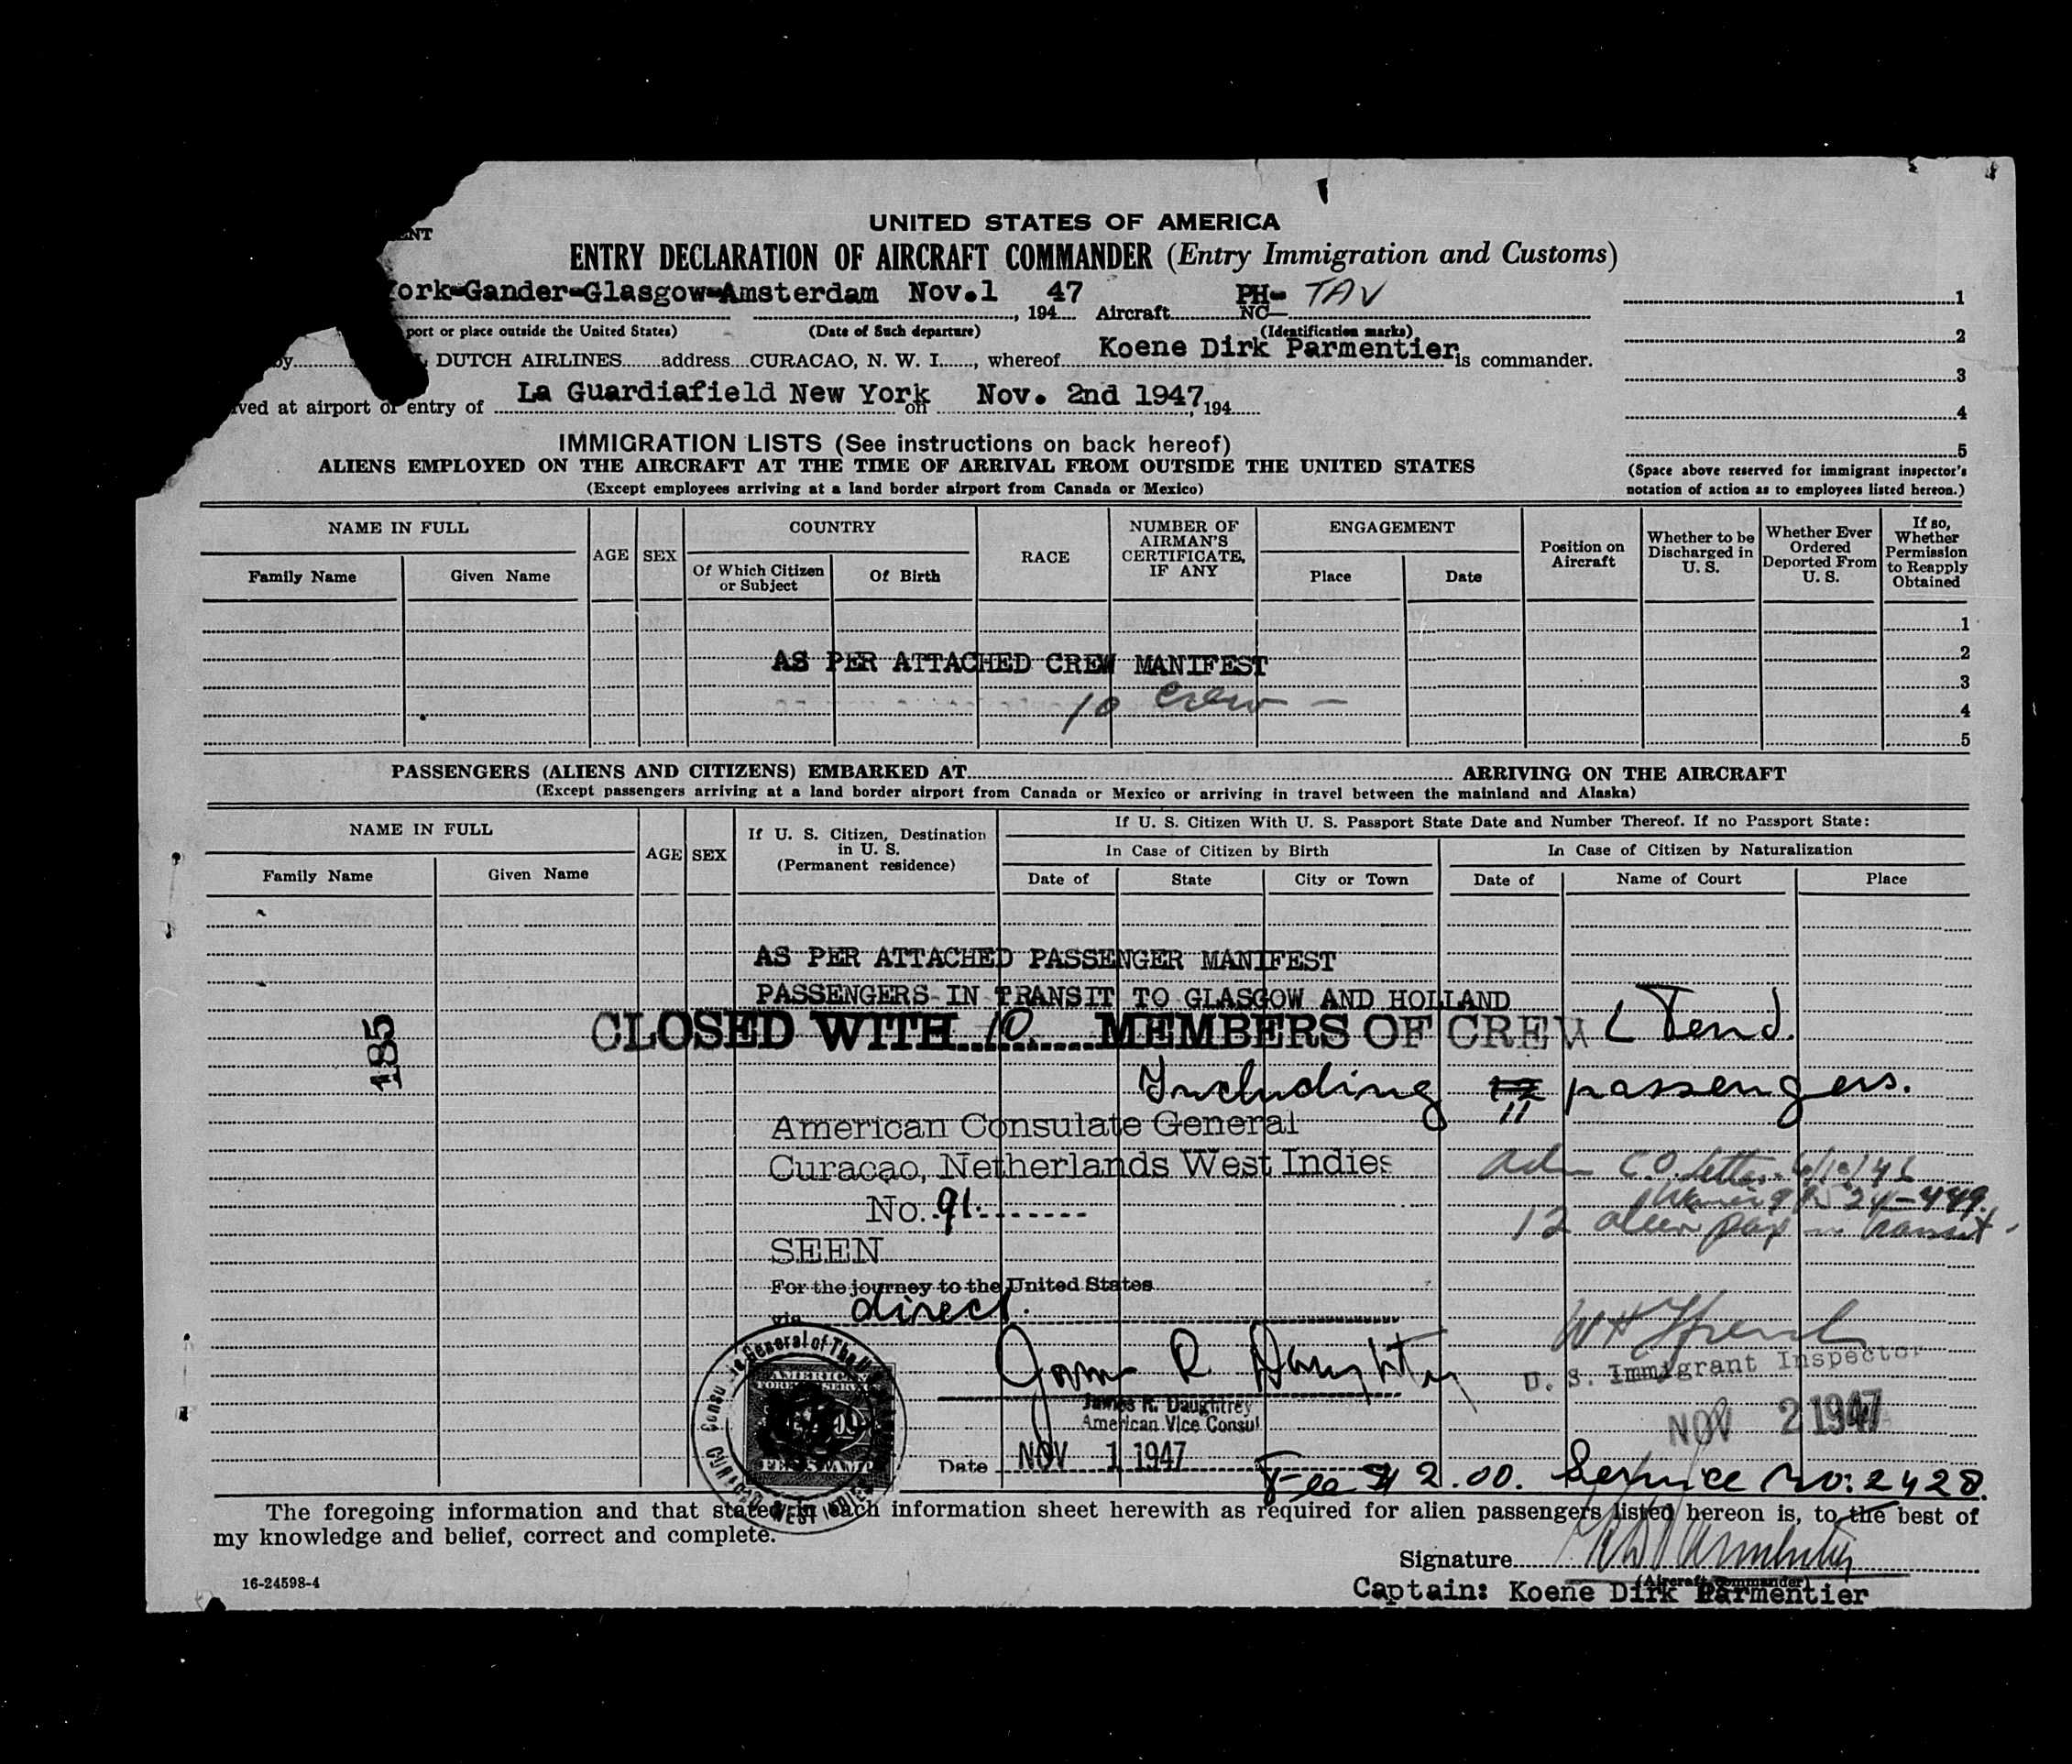 UNITED STATES OF AMERICA
ENT
ENTRY DECLARATION OF AIRCRAFT COMMANDER (Entry Immigration and Customs)
York-Gander-Glasgow-Amsterdam Nov.1 47 PH- TAV
, 194 Aircraft NC—
port or place outside the United States) (Date of Such departure) (Identification marks)
by DUTCH AIRLINES address CURACAO, N. W. I., whereof Koene Dirk Parmentier is commander.
ved at airport of entry of La Guardiafield New York on Nov. 2nd 1947, 194
1
2
3
4
5
(Space above reserved for immigrant inspector's
notation of action as to employees listed hereon.)
IMMIGRATION LISTS (See instructions on back hereof)
ALIENS EMPLOYED ON THE AIRCRAFT AT THE TIME OF ARRIVAL FROM OUTSIDE THE UNITED STATES
(Except employees arriving at a land border airport from Canada or Mexico)
NAME IN FULL
Family Name
Given Name
AGE
SEX
COUNTRY
Of Which Citizen
or Subject
Of Birth
RACE
NUMBER OF
AIRMAN'S
CERTIFICATE,
IF ANY
ENGAGEMENT
Place
Date
Position on
Aircraft
Whether to be
Discharged in
U. S.
Whether Ever
Ordered
Deported From
U. S.
If so,
Whether
Permission
to Reapply
Obtained
1
2
3
4
5
AS PER ATTACHED CREW MANIFEST
10 crew —
PASSENGERS (ALIENS AND CITIZENS) EMBARKED AT ARRIVING ON THE AIRCRAFT
(Except passengers arriving at a land border airport from Canada or Mexico or arriving in travel between the mainland and Alaska)
NAME IN FULL
Family Name
Given Name
AGE
SEX
If U. S. Citizen, Destination
in U. S.
(Permanent residence)
If U. S. Citizen With U. S. Passport State Date and Number Thereof. If no Passport State:
In Case of Citizen by Birth
Date of
State
City or Town
In Case of Citizen by Naturalization
Date of
Name of Court
Place
AS PER ATTACHED PASSENGER MANIFEST
PASSENGERS IN TRANSIT TO GLASGOW AND HOLLAND
CLOSED WITH 10 MEMBERS OF CREW
185
Including 11 passengers.
American Consulate General
Curacao, Netherlands West Indies
No. 91
SEEN
For the journey to the United States
via direct.
12 alien pax in transit
James R. Daughtrey
James R. Daughtrey
American Vice Consul
Date NOV 1 1947
U. S. Immigrant Inspector
NOV 2 1947
AMERICAN
FOREIGN SERVICE
FEE STAMP
Fee $ 2.00. Service No: 2428.
The foregoing information and that stated in each information sheet herewith as required for alien passengers listed hereon is, to the best of
my knowledge and belief, correct and complete.
Signature KD Parmentier
(Aircraft commander)
16-24598-4
Captain: Koene Dirk Parmentier